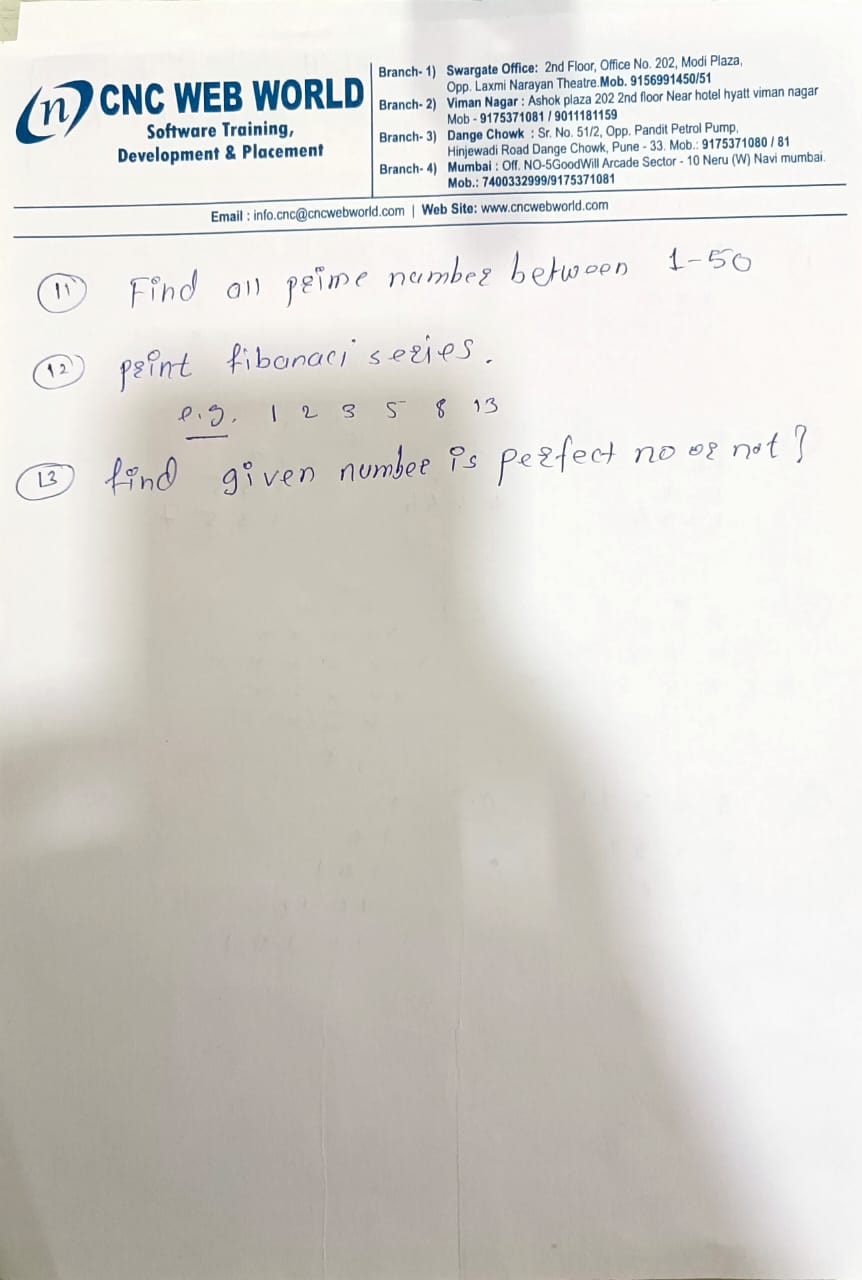 (n) CNC WEB WORLD
Software Training,
Development & Placement
Branch- 1) Swargate Office: 2nd Floor, Office No. 202, Modi Plaza,
Opp. Laxmi Narayan Theatre.Mob. 9156991450/51
Branch- 2) Viman Nagar : Ashok plaza 202 2nd floor Near hotel hyatt viman nagar
Mob - 9175371081 / 9011181159
Branch- 3) Dange Chowk : Sr. No. 51/2, Opp. Pandit Petrol Pump,
Hinjewadi Road Dange Chowk, Pune - 33. Mob.: 9175371080 / 81
Branch- 4) Mumbai : Off. NO-5GoodWill Arcade Sector - 10 Neru (W) Navi mumbai.
Mob.: 7400332999/9175371081
Email : info.cnc@cncwebworld.com | Web Site: www.cncwebworld.com
11 Find all prime number between 1-50
12 print fibonaci series.
e.g. 1 2 3 5 8 13
13 find given number is perfect no or not?